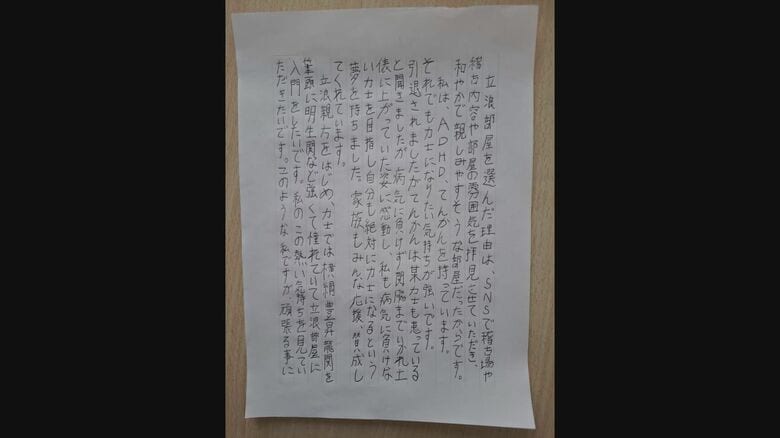 立浪部屋を選んだ理由は、SNSで稽古場や
稽古内容や部屋の雰囲気を拝見させていただき、
和やかで親しみやすそうな部屋だったからです。
私は、ADHD、てんかんを持っています。
それでも力士になりたい気持ちが強いです。
引退されましたがてんかんは某力士も患っている
と聞きましたが病気に負けず関脇までいかれ土
俵に上がっていた姿に感動し、私も病気に負けな
い力士を目指し自分も絶対に力士になるという
夢を持ちました。家族もみんな応援、賛成し
てくれています。
立浪親方をはじめ、力士では横綱豊昇龍関を
筆頭に明生関など強くて憧れていて立浪部屋に
入門をしたいです。私のこの熱い気持ちを見てい
ただきたいです。このような私ですが、頑張る事に